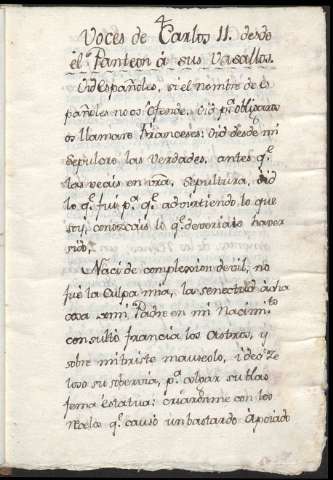 4
Voces de Carlos II. desde
el Panteon á sus Vasallos.
Oid Españoles, si el nombre de Es
pañoles no os ofende, oid pr. obligaros
os llamare Franceses: oid desde mi
Sepulcro las verdades, antes qe.
las veais en sepultura, oid
lo qe. fui pa. qe. advirtiendo lo que
soy, conozcais lo qe. devoriais haver
sido.
Naci de complexion devil, no
fue la culpa mia, la senectud
cosa mi Padre en mi Nacimto.
consultó francia los Astros, y
sobre mi triste mausolo, ideó Ze
loso su sobervia, pa. colocar su blas
fema estatua: criaronme con los
Zelos qe. causó un bastardo apoiado